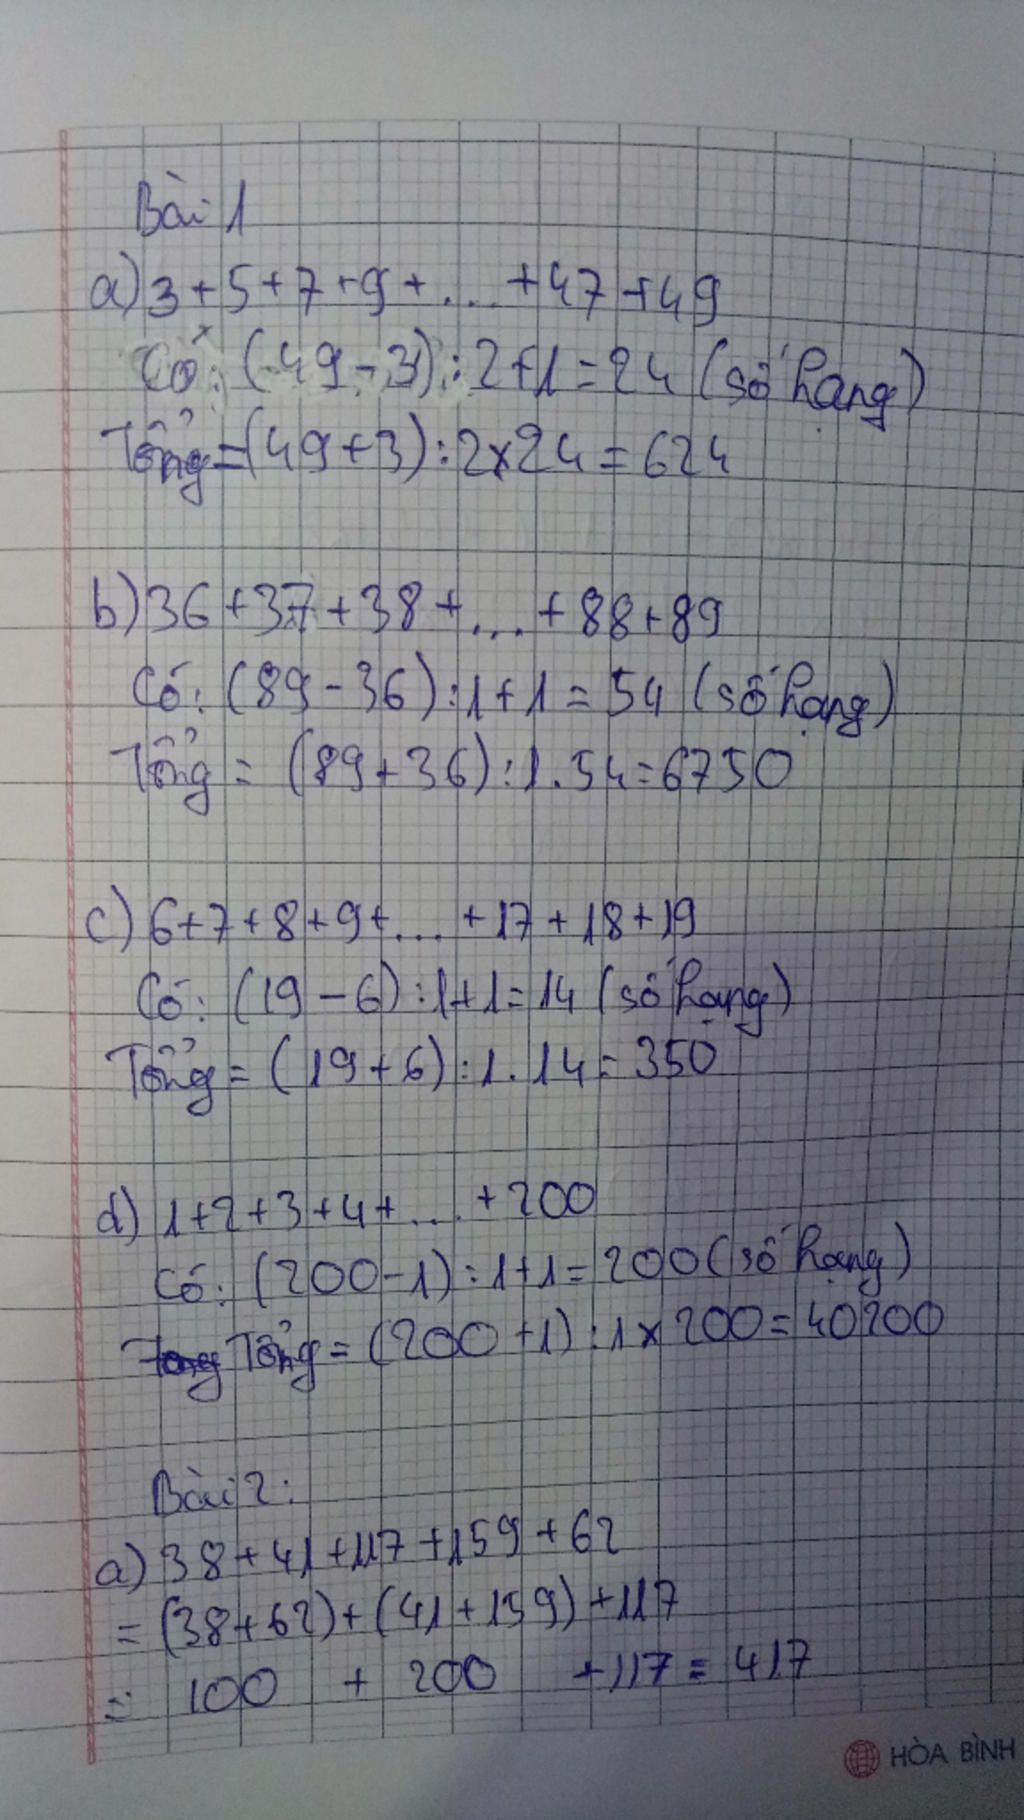 Bài 1
a) 3 + 5 + 7 + 9 + .... + 47 + 49
Có: (49 - 3) : 2 + 1 = 24 (số hạng)
Tổng = (49 + 3) : 2 x 24 = 624
b) 36 + 37 + 38 + .... + 88 + 89
Có: (89 - 36) : 1 + 1 = 54 (số hạng)
Tổng = (89 + 36) : 1 . 54 = 6750
c) 6 + 7 + 8 + 9 + .... + 17 + 18 + 19
Có: (19 - 6) : 1 + 1 = 14 (số hạng)
Tổng = (19 + 6) : 1 . 14 = 350
d) 1 + 2 + 3 + 4 + .... + 200
Có: (200 - 1) : 1 + 1 = 200 (số hạng)
Tổng = (200 + 1) : 1 x 200 = 40200
Bài 2:
a) 38 + 41 + 117 + 159 + 62
= (38 + 62) + (41 + 159) + 117
= 100 + 200 + 117 = 417
HÒA BÌNH